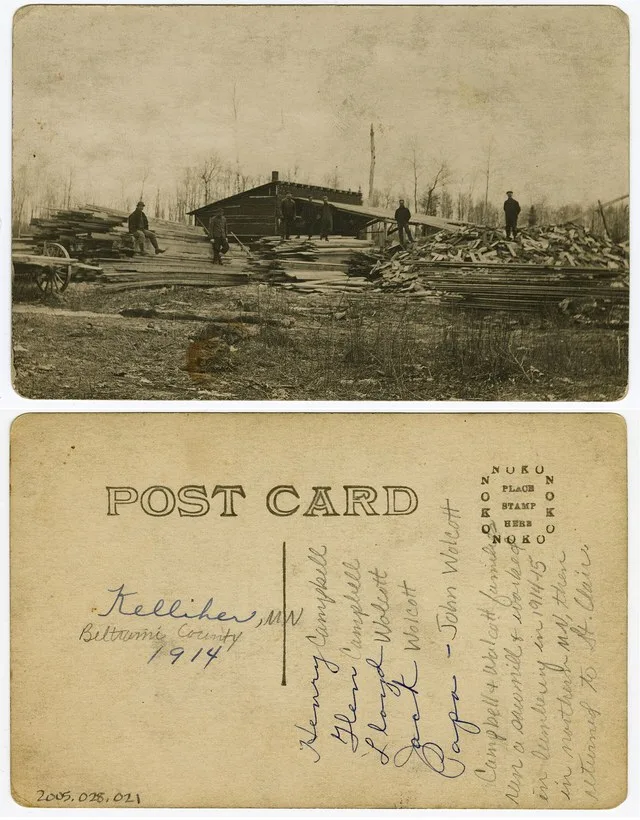 POST CARD
NOKO
NOKO
PLACE
STAMP
HERE
NOKO
NOKO
Kelliher, MN
Beltrami County
1914
Henry Campbell
Glen Campbell
Lloyd Wolcott
Jack Wolcott
Papa - John Wolcott
Campbell & Wolcott families
run a sawmill & worked
in lumbering in 1914-15
in northern MN, then
returned to St. Clair.
2005.028.021